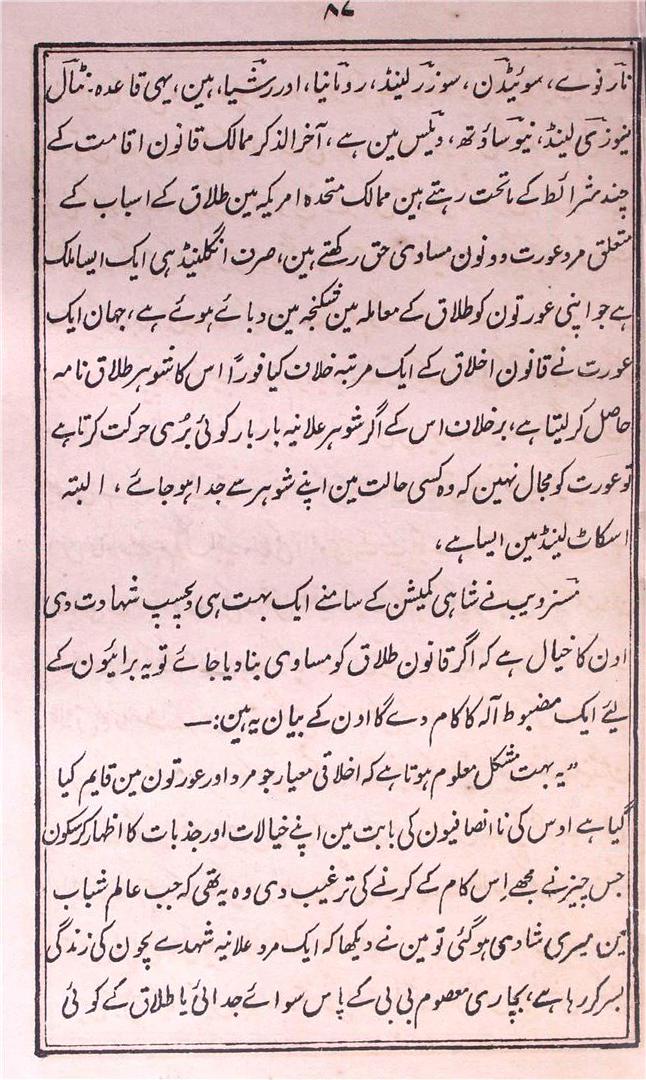 ۸۷
نارنوے، سوئیڈن، سوزرلینڈ، رومانیا، اور رشیا، ہین، یہی قاعدہ۔ نٹال
نیوزی لینڈ، نیو ساؤتھ، ویلس مین ہے، آخر الذکر ممالک قانون اقامت کے
چند شرائط کے ماتحت رہتے ہین ممالک متحدہ امریکہ مین طلاق کے اسباب کے
متعلق مرد عورت دونون مساوی حق رکھتے ہین، صرف انگلینڈ ہی ایک ایسا ملک
ہے جو اپنی عورتون کو طلاق کے معاملہ مین شکنجہ مین دبائے ہوئے ہے، جہان ایک
عورت نے قانون اخلاق کے ایک مرتبہ خلاف کیا فوراً اس کا شوہر طلاق نامہ
حاصل کر لیتا ہے، برخلاف اس کے اگر شوہر علانیہ بار بار کوئی بُری حرکت کرتا ہے
تو عورت کو مجال نہین کہ وہ کسی حالت مین اپنے شوہر سے جدا ہو جائے، البتہ
اسکاٹ لینڈ مین ایسا ہے،
مسزویب نے شاہی کمیشن کے سامنے ایک بہت ہی دلچسپ شہادت دی
اون کا خیال ہے کہ اگر قانون طلاق کو مساوی بنا دیا جائے تو یہ برائیون کے
لیئے ایک مضبوط آلہ کا کام دے گا اون کے بیان یہ ہین:۔
”یہ بہت مشکل معلوم ہوتا ہے کہ اخلاقی معیار جو مرد اور عورتون مین قایم کیا
گیا ہے اوس کی نا انصافیون کی بابت مین اپنے خیالات اور جذبات کا اظہار کر سکون
جس چیز نے مجھے اِس کام کے کرنے کی ترغیب دی وہ یہ تھی کہ جب عالم شباب
مین میری شادی ہو گئی تو مین نے دیکھا کہ ایک مرد علانیہ شہدے پچون کی زندگی
بسر کر رہا ہے، بچاری معصوم بی بی کے پاس سوائے جدائی یا طلاق کے کوئی